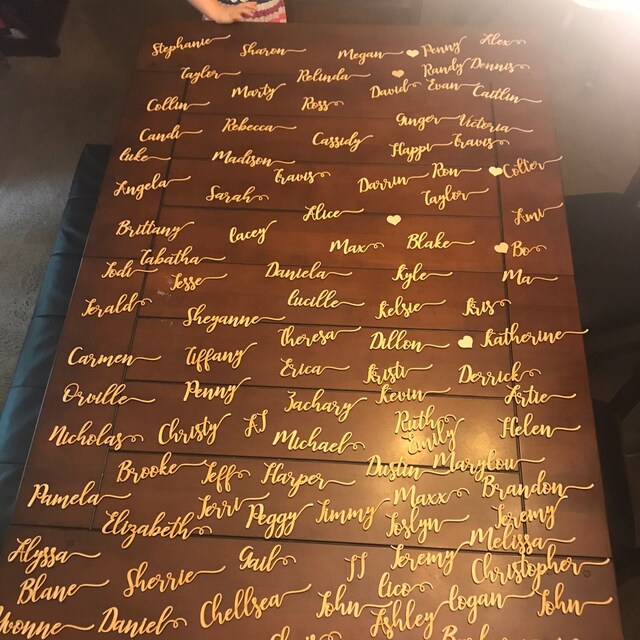 Stephanie Sharon Megan Penny Alex
Taylor Relinda Randy Dennis
Collin Marty Ross David Evan Caitlin
Candi Rebecca Cassidy Ginger Victoria
Luke Madison Happi Travis
Angela Sarah Travis Darrin Ron Colter
Taylor
Brittany Lacey Alice Ami
Tabatha Max Blake Bo
Jodi Jesse Daniela Kyle Ma
Jerald Sheyanne Lucille Kelsie Kris
Theresa Dillon Katherine
Carmen Tiffany Erica Kristi Derrick
Orville Penny Zachary Kevin Artie
Nicholas Christy AJ Michael Ruth Emily Helen
Brooke Jeff Harper Dustin Marylou Brandon
Pamela Jerri Maxx
Elizabeth Peggy Jimmy Joslyn Jeremy
Alyssa Gail JJ Jeremy Melissa
Blane Sherrie Christopher
Yvonne Daniel Chellsea John Lico Logan John
Ashley